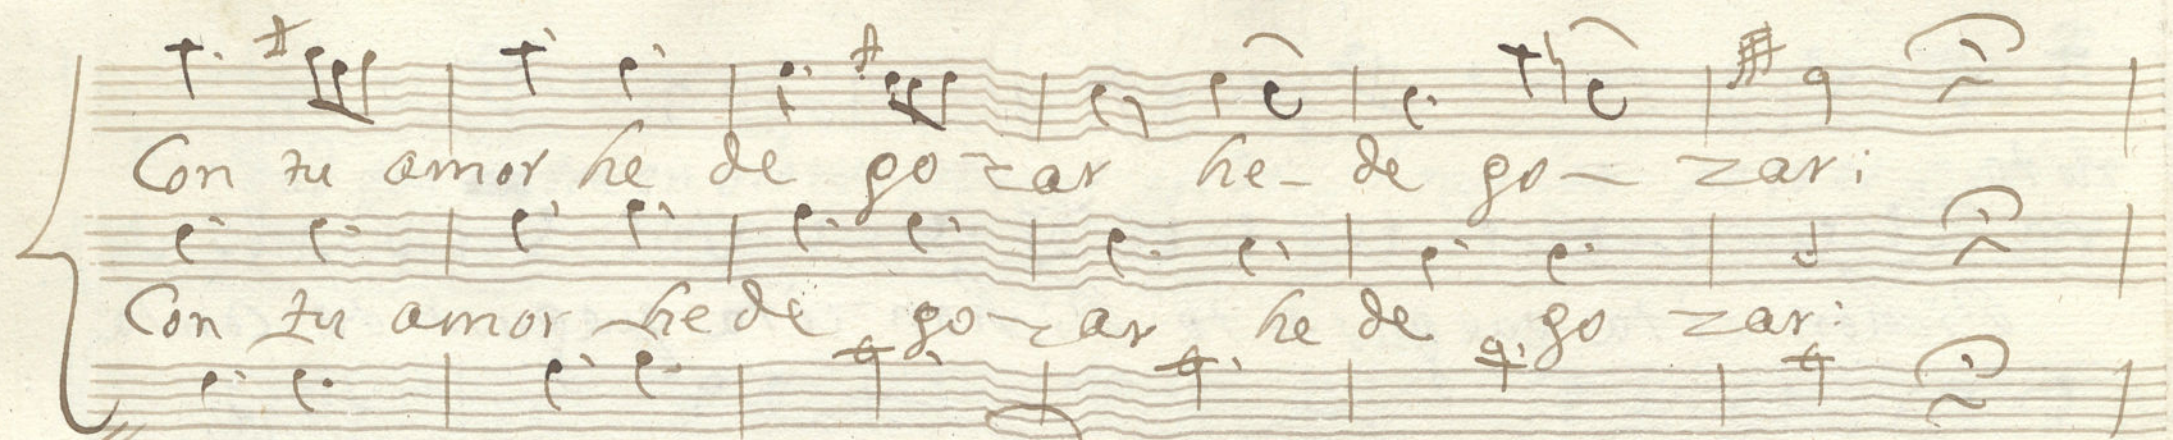 Con tu amor he de go-zar he- de go- zar:
Con tu amor he de go-zar he de go zar: